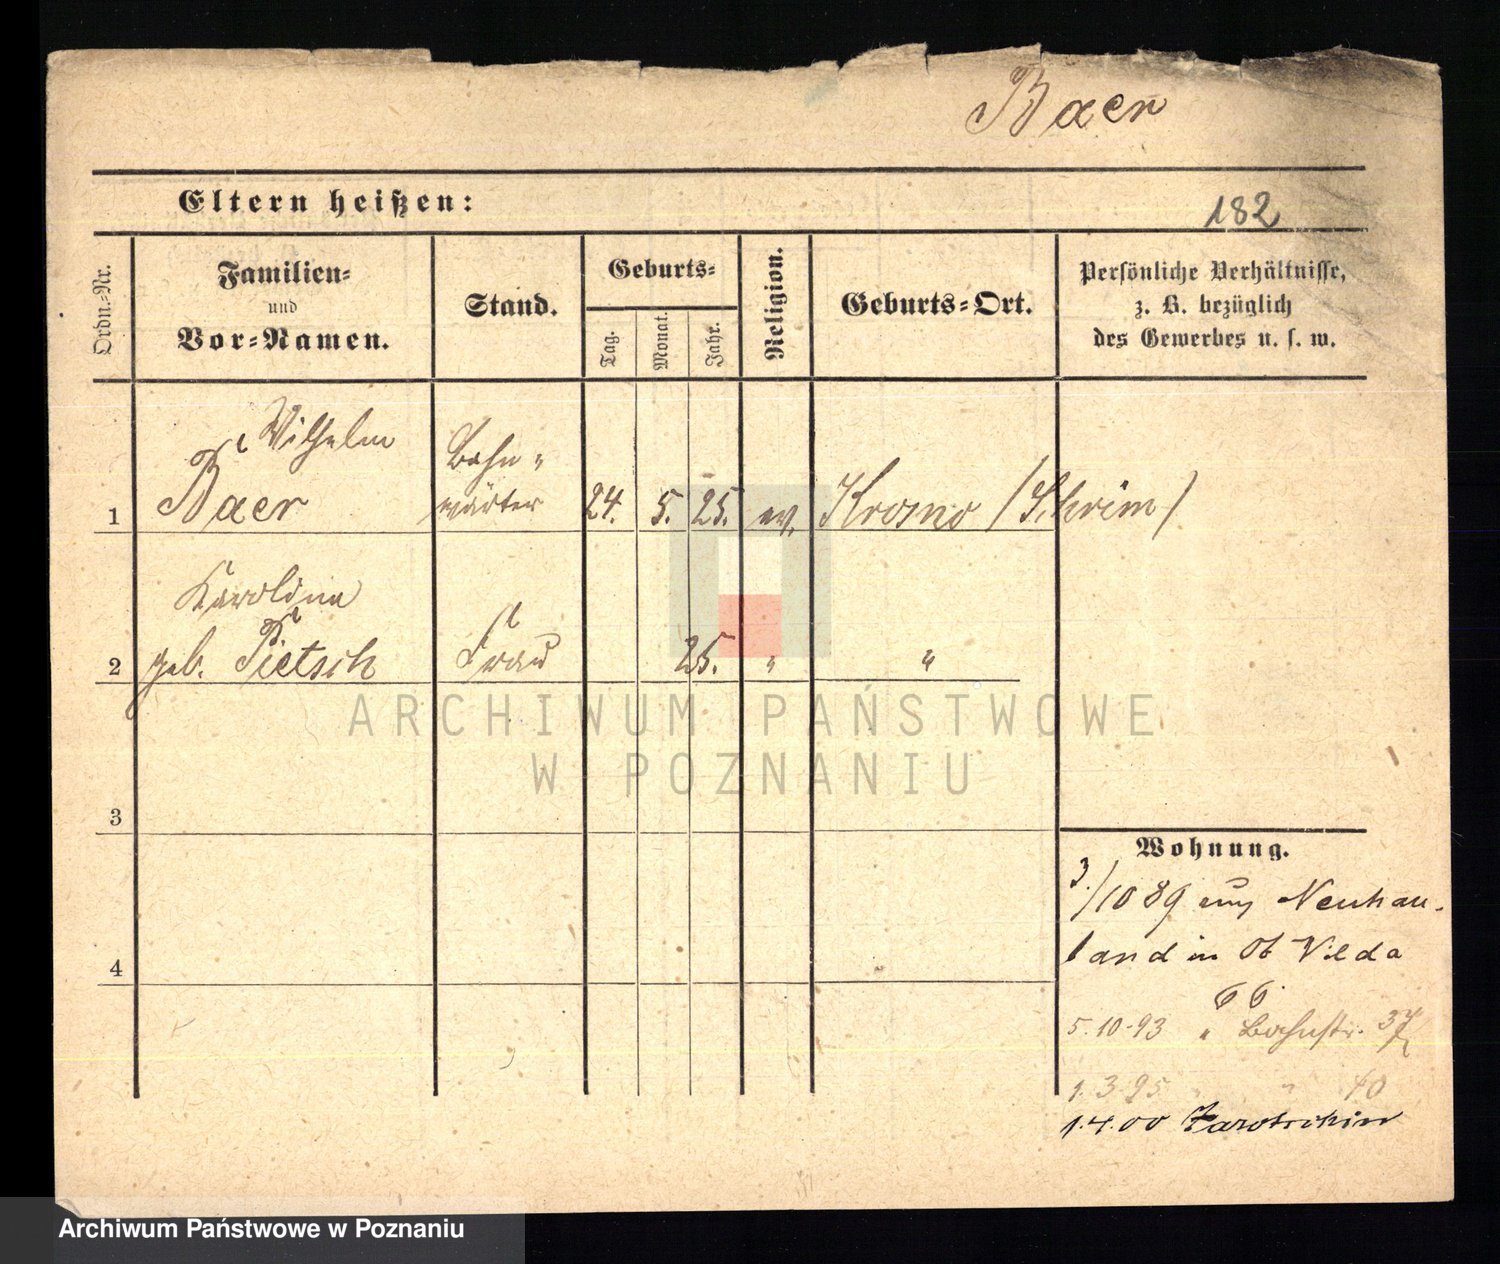 Baer
Eltern heißen:
182
Ordn.-Nr.
Familien-
und
Vor-Namen.
Stand.
Geburts-
Tag.
Monat.
Jahr.
Religion.
Geburts-Ort.
Persönliche Verhältnisse,
z. B. bezüglich
des Gewerbes u. s. w.
1
Wilhelm
Baer
Bahn-
wärter
24.
5.
25.
ev.
Krosno (Schrim)
2
Karolina
geb. Pietsch
Frau
25.
"
"
ARCHIWUM PAŃSTWOWE
W POZNANIU
3
4
Wohnung.
3./10 89 aus
land in Ob Vilda
66
5.10.93 " Bahnstr. 37
1.3.95 " " 40
1.4.00 Jarotschin
Archiwum Państwowe w Poznaniu